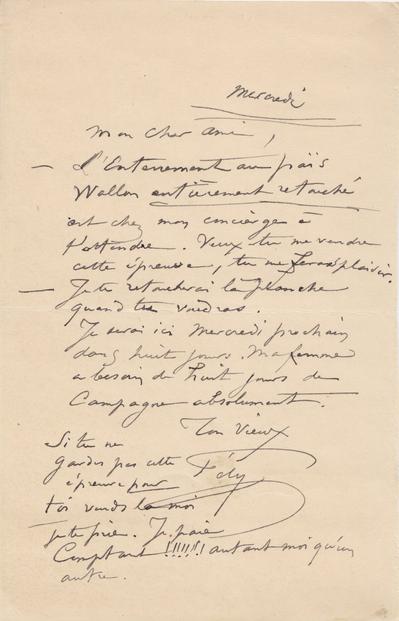 Mercredi
Mon cher ami,
— L'Enterrement au païs
Wallon entièrement retouché
est chez mon concierge à
t'attendre. Veux tu me vendre
cette épreuve, tu me feras plaisir.
— Je te retoucherai la planche
quand tu voudras.
Je serai ici Mercredi prochain
dans huit jours. Ma femme
a besoin de huit jours de
Campagne absolument.
Ton vieux
Fély
Si tu ne
gardes pas cette
épreuve pour
toi vends la moi
je te prie. Je paie
Comptant !!!!!!! autant moi qu'un
autre.